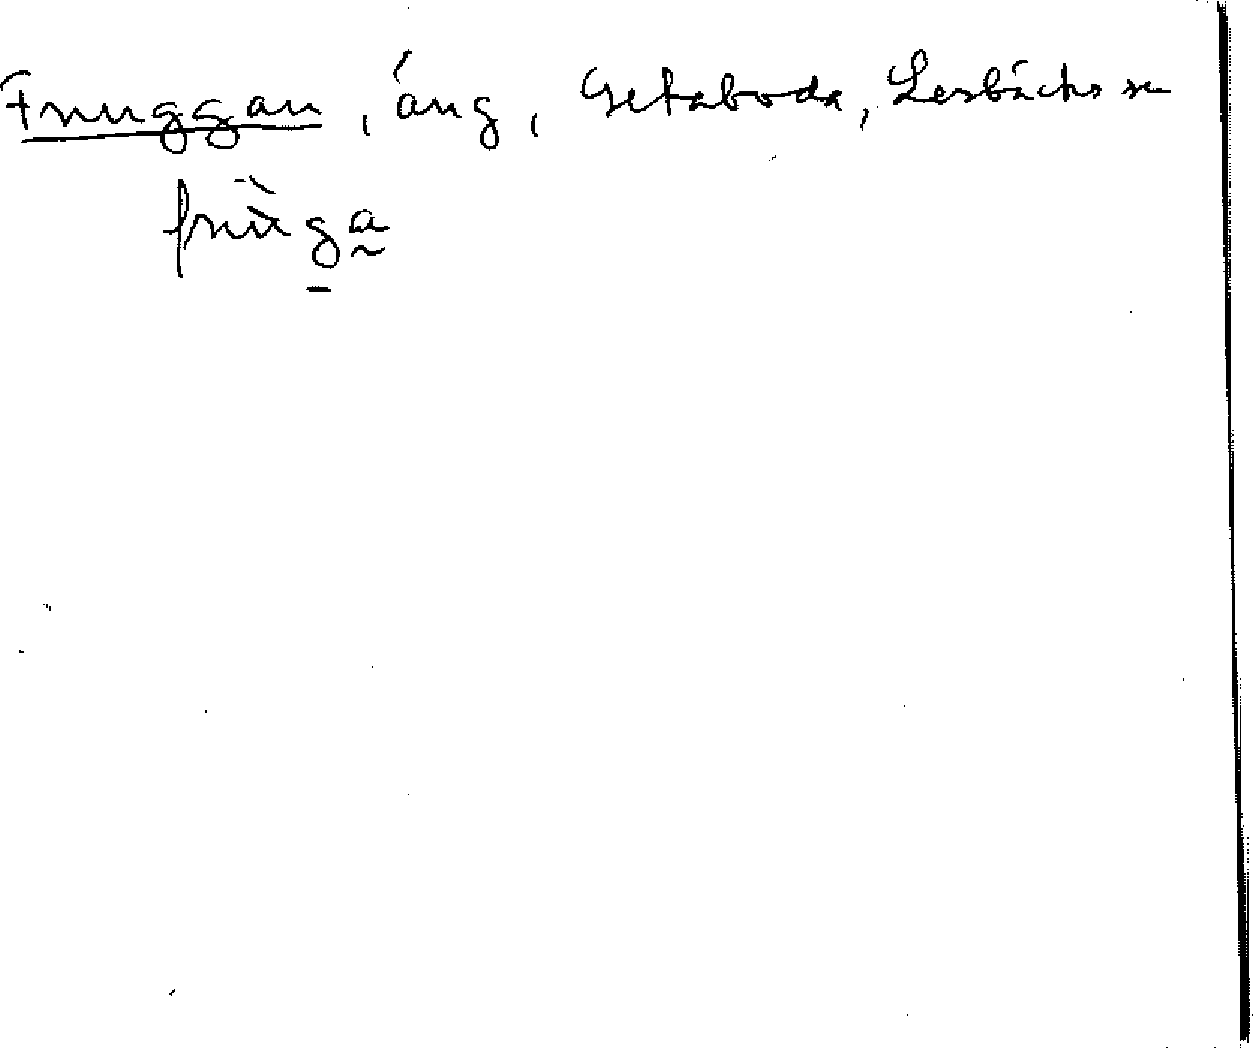 Fnuggan, äng, Getaboda, Lerbäcks sn
fnùga